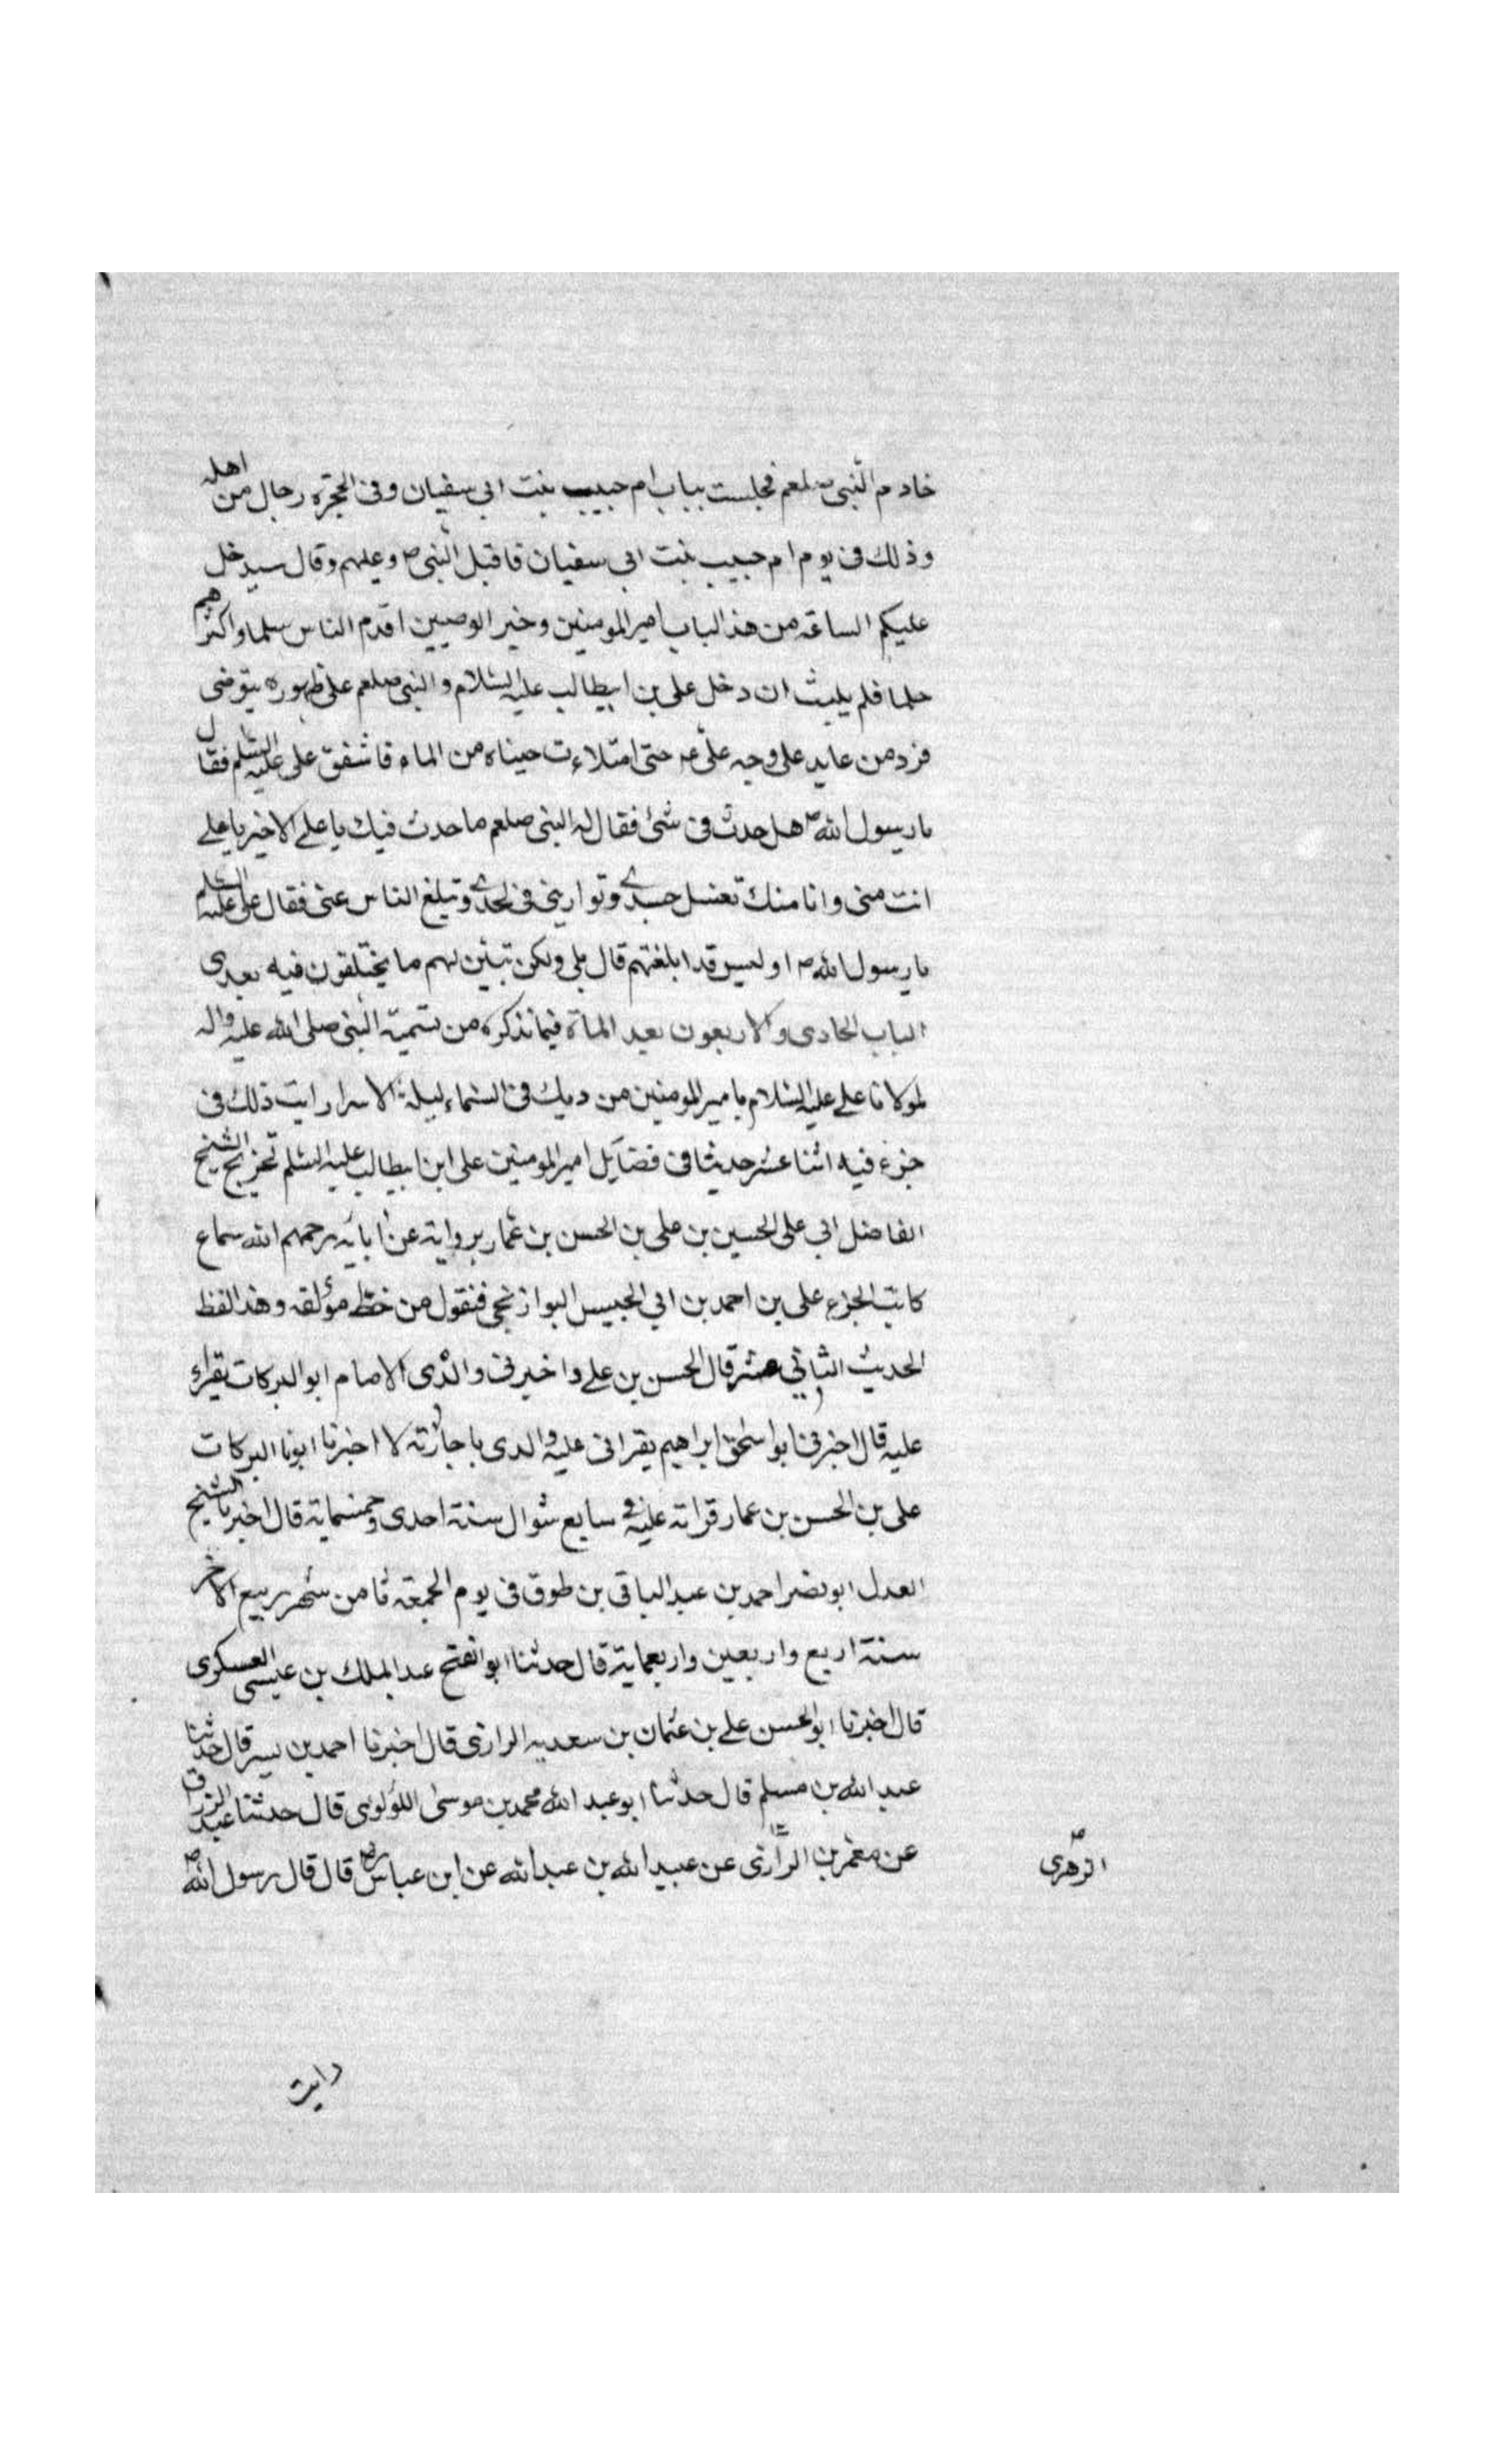 خادم النبى صلعم فجلست بباب ام حبيب بنت ابى سفيان وفى الحجرة رجال من اهله
وذلك فى يوم ام حبيب بنت ابى سفيان فاقبل النبى ص وعليهم وقال سيدخل
عليكم الساعة من هذ الباب امير المومنين وخير الوصيين اقدم الناس سلما واكثرهم
حلما فلم يلبث ان دخل على بن ابيطالب عليه السلام والنبى صلعم على ظهوره يتوضى
فرد من على وجه على ع حتى امتلاءت عيناه من الماء فاشفق على عليه السلم فقال
يا رسول الله ص هل حدث فى شئ فقال له النبى صلعم ما حدث فيك يا على الا خير يا على
انت منى وانا منك تغسل جسدى وتوارينى فى لحدى وتبلغ الناس عنى فقال على عليه السلم
يا رسول الله ص او ليس قد ابلغتهم قال بلى ولكن تبين لهم ما يختلفون فيه بعدى
الباب الحادى والاربعون بعد الماة فيما نذكره من تسمية النبى صلى الله عليه واله
لمولانا على عليه السلام بامير المومنين من ديك فى السماء ليلة الاسرا رايت ذلك فى
جزء فيه اثنا عشر حديثا فى فضايل امير المومنين على ابن ابيطالب عليه السلم تخريج الشيخ
الفاضل ابى على الحسين بن على بن الحسن بن عمار بروايته عن ابائه رحمهم الله سماع
كاتب الجزء على بن احمد بن ابى الجيس البوازنجى فنقول من خط مؤلفه وهذ الفظ
الحديث الثانى عشر قال الحسن بن على واخبرنى والدى الامام ابو البركات يقراء
عليه قال اخبرنى ابو اسحق ابراهيم يقرانى عليه والدى باجازته لا اخبرنا ابونا البركات
على بن الحسن بن عمار قراته عليه فى سابع شوال سنة احدى وخمسماية قال اخبرنا الشيخ
العدل ابو نصر احمد بن عبد الباقى بن طوق فى يوم الجمعة ثامن شهر ربيع الاخر
سنة اربع واربعين واربعماية قال حدثنا ابو الفتح عبد الملك بن عيسى العسكرى
قال اخبرنا ابو الحسن على بن عثمان بن سعديه الرازى قال اخبرنا احمد بن يسر قال حدثنا
عبد الله بن مسلم قال حدثنا ابو عبد الله محمد بن موسى اللولوى قال حدثنا عبد الرزاق
عن معمر بن الرازى عن عبيد الله بن عبد الله عن ابن عباس رض قال قال رسول الله ص
الزهرى ص
رايت